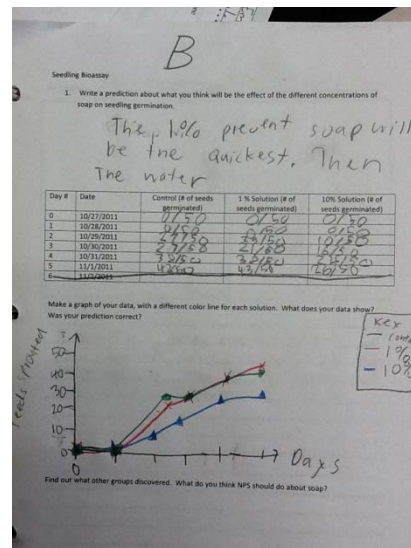 B
Seedling Bioassay
1. Write a prediction about what you think will be the effect of the different concentrations of
soap on seedling germination.
The 1% precent soap will
be the quickest. Then
The water
Day # Date Control (# of seeds germinated) 1 % Solution (# of seeds germinated) 10% Solution (# of seeds germinated)
0 10/27/2011 0/50 0/50 0/50
1 10/28/2011 0/50 0/50 0/50
2 10/29/2011
3 10/30/2011
4 10/31/2011 38/50
5 11/1/2011 43/50 26/50
6 11/2/2011
Make a graph of your data, with a different color line for each solution. What does your data show?
Was your prediction correct?
Key
1%
10%
Seeds sprouted
50
40
30
20
10
0
0
Days
Find out what other groups discovered. What do you think NPS should do about soap?